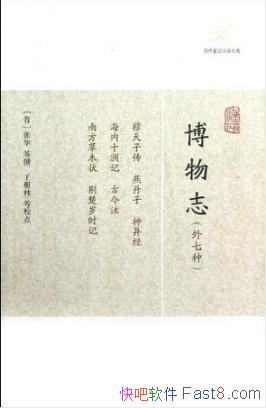 历代笔记小说大观
博物志
（外七种）
穆天子传 燕丹子 神异经
海内十洲记 古今注
南方草木状 荆楚岁时记
［晋］张华 等撰 王根林 等校点
快吧软件 Fast8.com